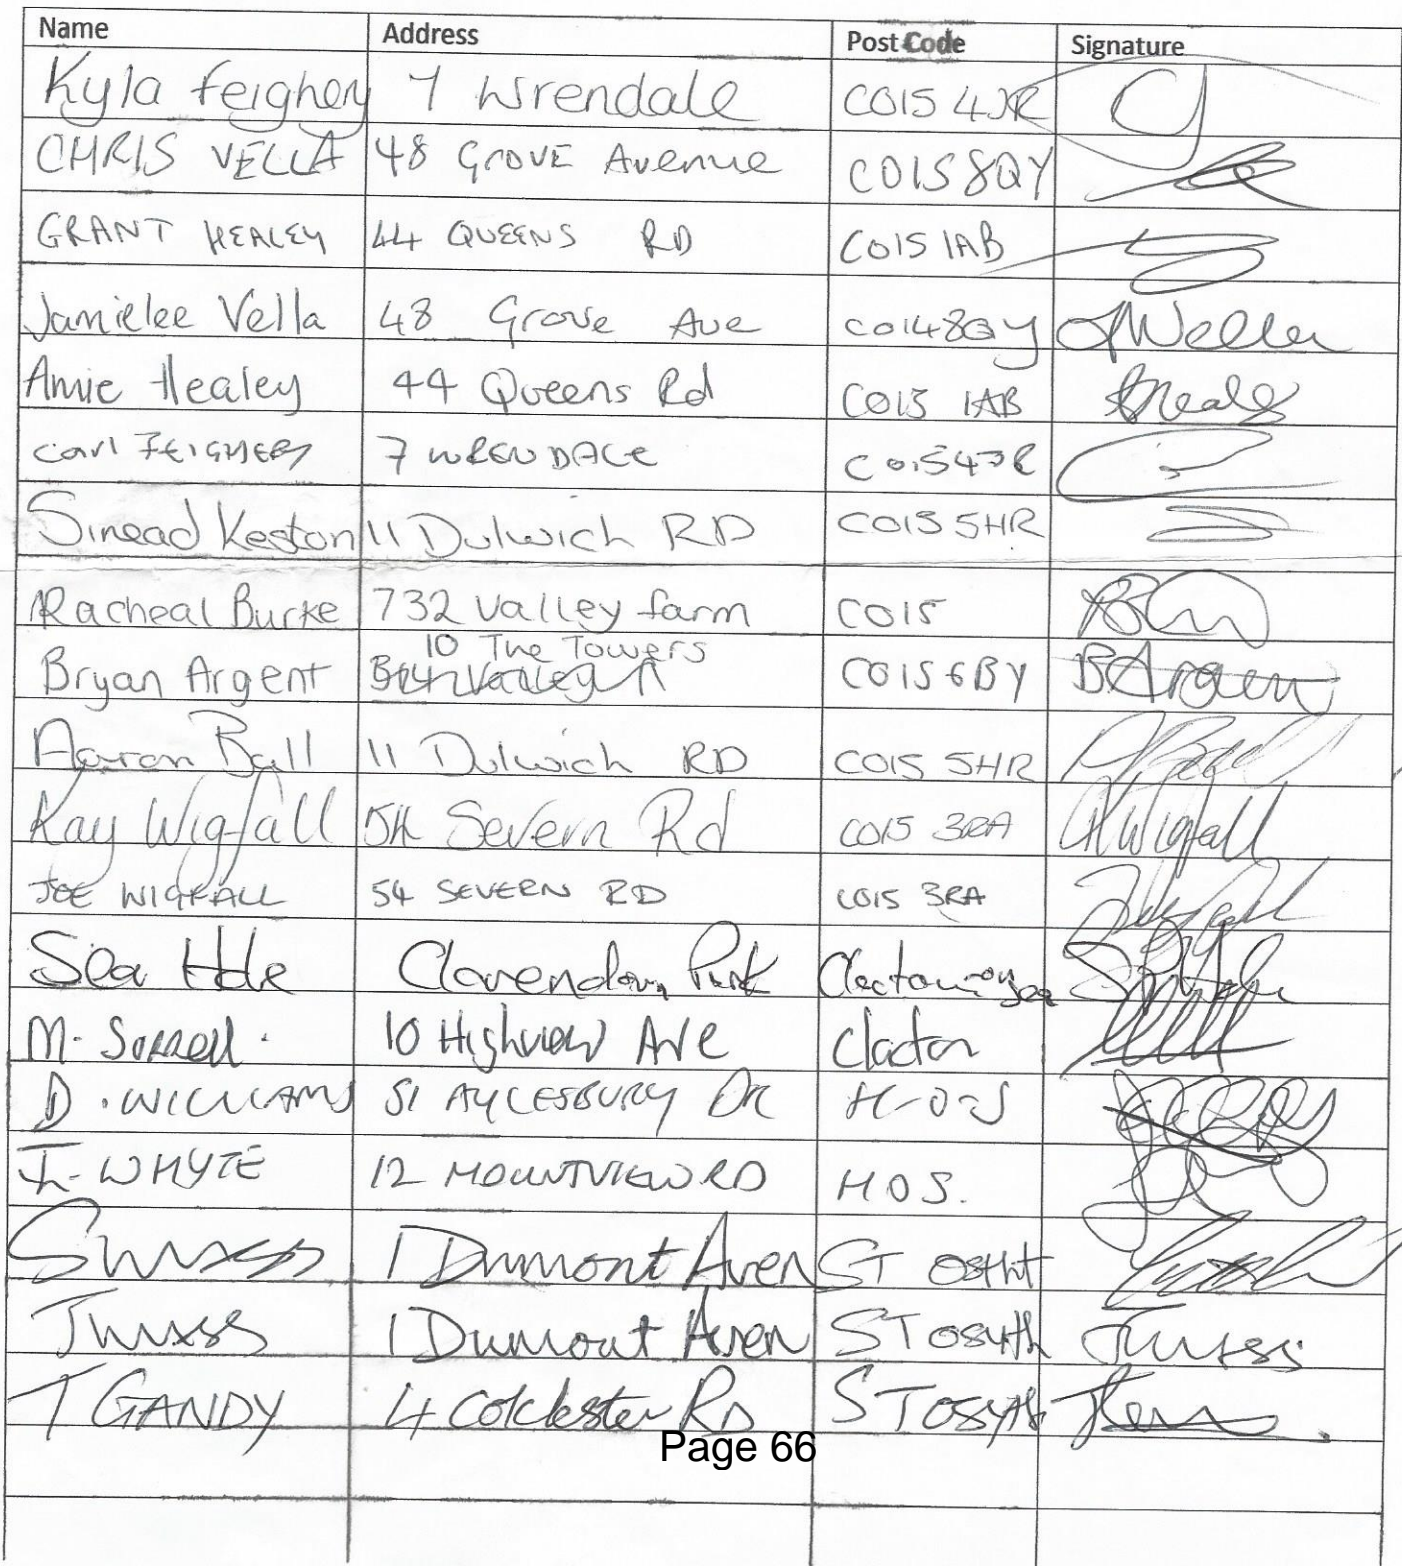 Name Address Post Code Signature
Kyla Feighery 7 Wrendale CO15 4JR
CHRIS VELLA 48 GROVE Avenue CO15 8QY
GRANT HEALEY 44 QUEENS RD CO15 1AB
Jamielee Vella 48 Grove Ave CO14 8QY
Amie Healey 44 Queens Rd CO15 1AB AHealey
Carl FEIGHERY 7 WRENDALE CO15 4JR
Sinead Keston 11 Dulwich RD CO15 5HR
Racheal Burke 732 Valley farm CO15
10 The Towers
Bryan Argent CO15 6BY BArgent
Aaron Ball 11 Dulwich RD CO15 5HR A Ball
Kay Wigfall 54 Severn Rd CO15 3RA KWigfall
JOE WIGFALL 54 SEVERN RD CO15 3RA
Clarendon Park Clacton on Sea
M. Sorrell. 10 Highview Ave Clacton
D. WILLIAMS 51 AYLESBURY DR H-O-S
I. WHYTE 12 MOUNTVIEW RD H O S.
1 Dumont Aven ST
1 Dumont Aven ST osyth
T GANDY 4 Colchester RD ST Osyth
Page 66